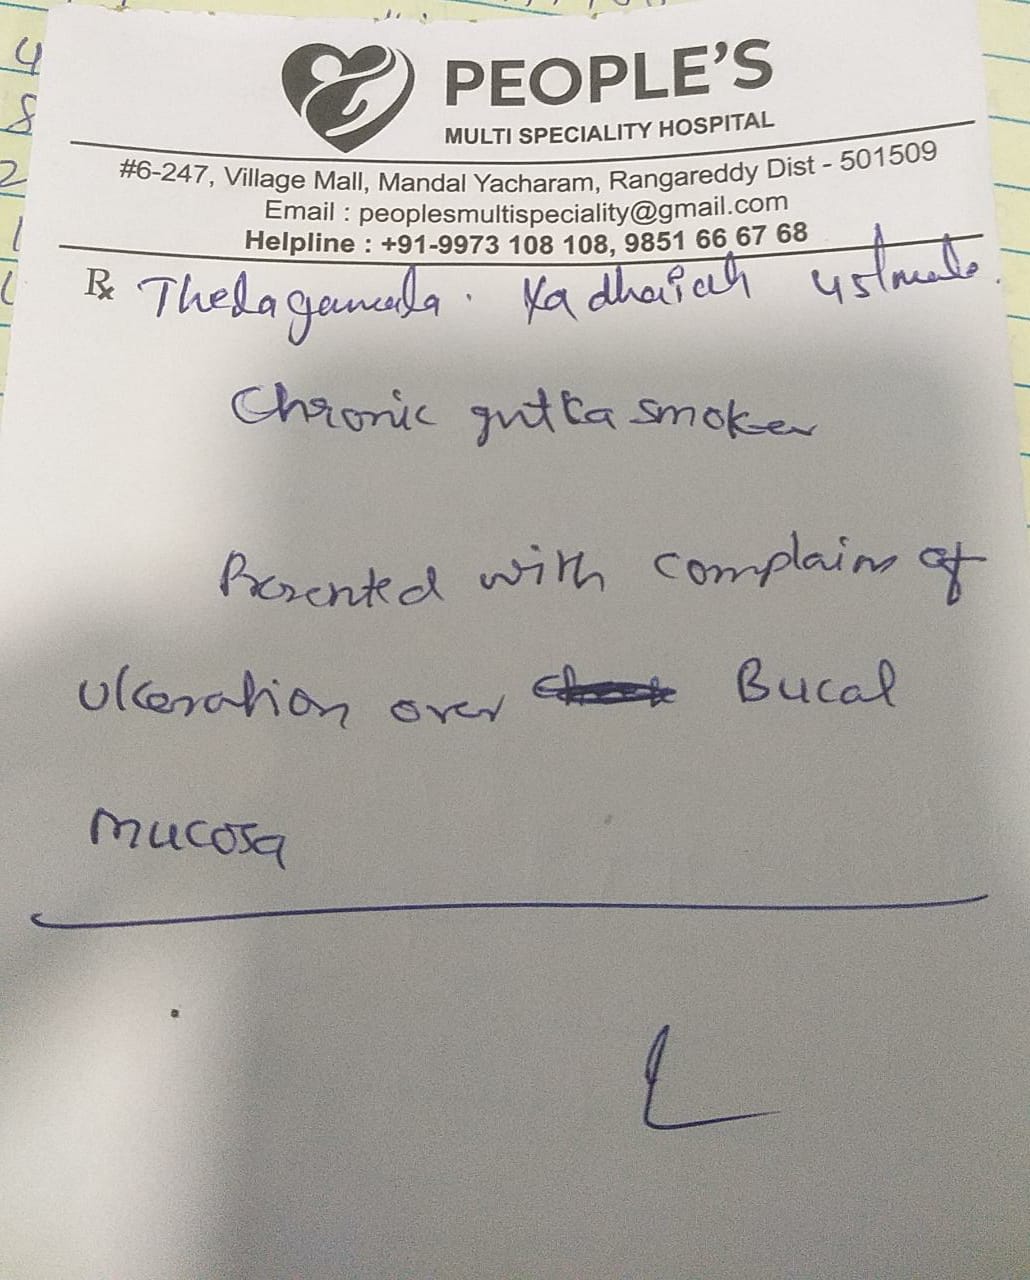 PEOPLE'S
MULTI SPECIALITY HOSPITAL
#6-247, Village Mall, Mandal Yacharam, Rangareddy Dist - 501509
Email : peoplesmultispeciality@gmail.com
Helpline : +91-9973 108 108, 9851 66 67 68
Rx Yadhaiah 45/male.
Chronic gutka smoker
Presented with complain of
ulceration over Bucal
mucosa
4
8
2
1